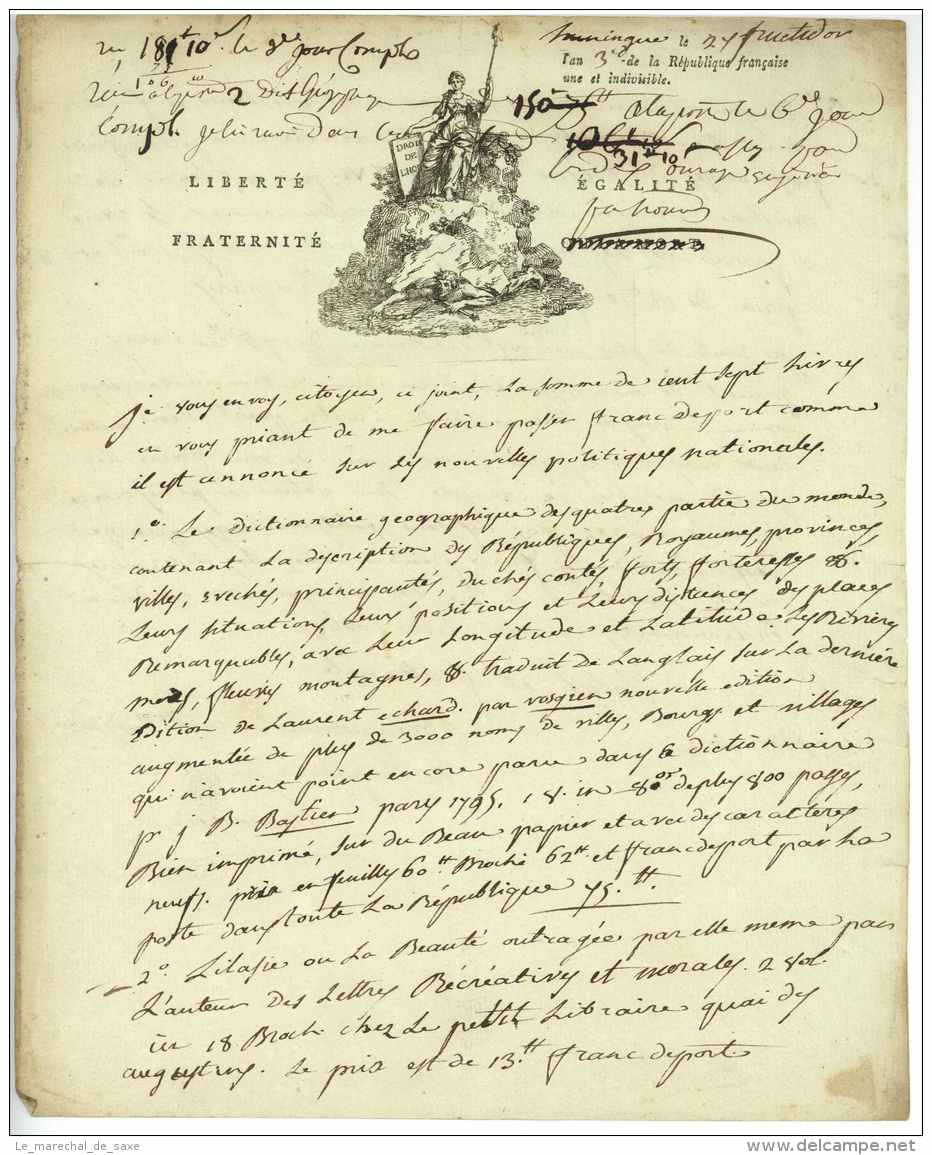 huningue le 27 fructidor
l'an 3e de la République française
une et indivisible.
150
31 10
DROITS
DE
L'HOM
LIBERTÉ
ÉGALITÉ
FRATERNITÉ
Je vous envoy, citoyen, ci joint, La somme de cent sept Livres
en vous priant de me faire passer franc de port comme
il est annoncé sur des nouvelles politiques nationales.
1o. Le dictionnaire geographique des quatres partie du monde,
contenant La description des Républiques, Royaumes, provinces,
villes, evechés, principautés, duchés contés, forts, forteresses &.
Leurs situations, Leurs positions et Leurs distances des places
Remarquables, avec Leur Longitude et Latitude. Les Rivières
mers, fleuves montagnes, &. traduit de Langlais sur La dernière
Edition de Laurent echard. par vosgien nouvelle edition
augmentée de plus de 3000 noms de villes, Bourgs et villages
qui n'avoient point encore parru dans ce dictionnaire
pr j B. Bastien paris 1795. 1 8. in 8o. de plus 800 passes,
Bien imprimé, sur du Beau papier et avec des caractères
neufs. prix en feuilles 60tt. Broché 62tt. et franc de port par La
poste dans toute La République 75.tt.
2o. Lilasie ou La Beauté outragée par elle meme par
L'auteur des Lettres Récréatives et morales. 2 vol.
in 18 Broch. chez Le petit Libraire quai des
augustins. Le prix est de 13.tt franc de port
Le_marechal_de_saxe
www.delcampe.net